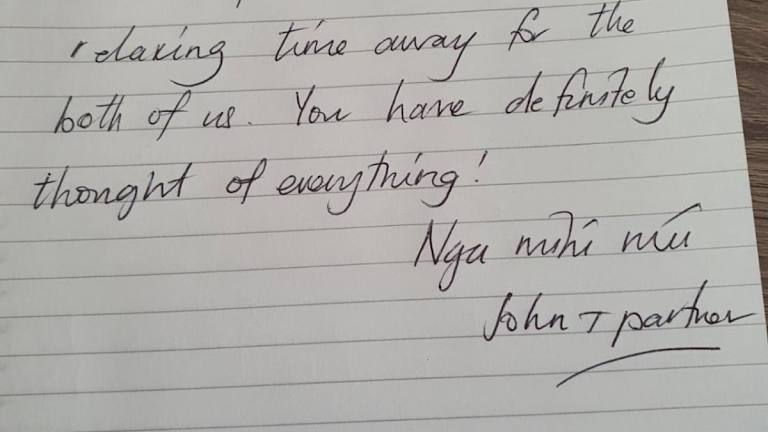 relaxing time away for the
both of us. You have definitely
thought of everything!
Nga mihi nui
John + partner